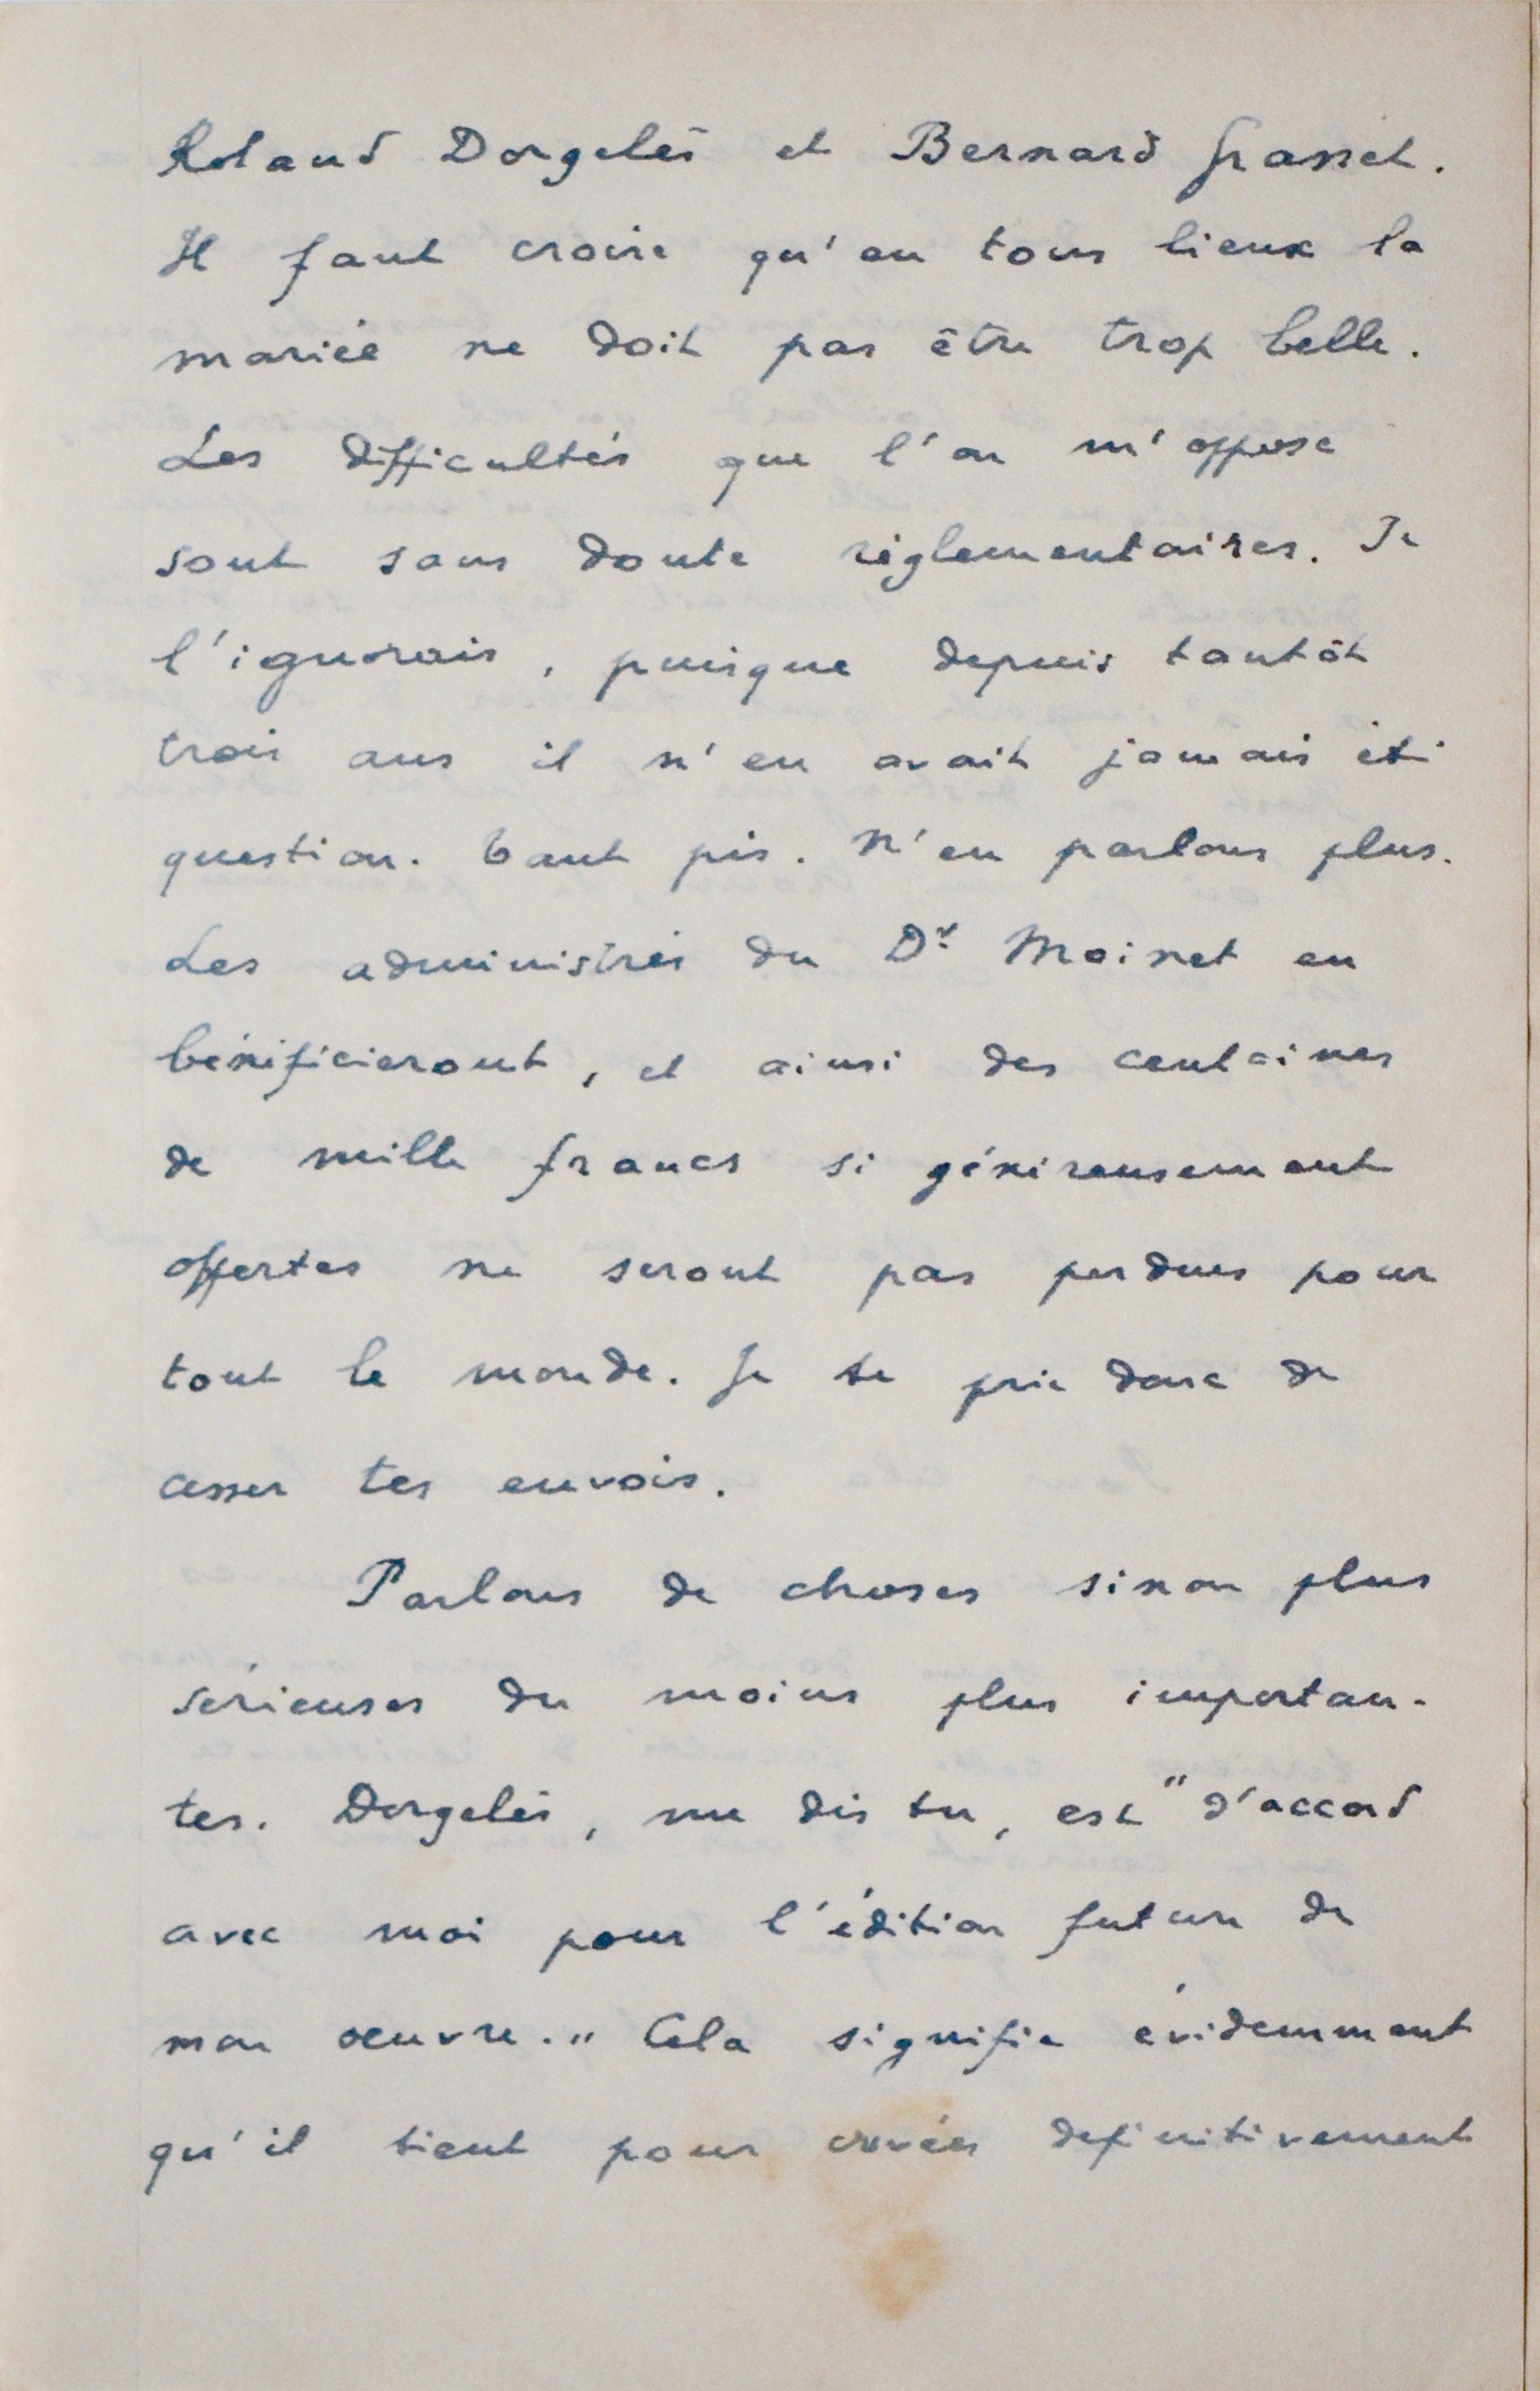 Roland Dorgelès et Bernard Grasset.
Il faut croire qu'en tous lieux la
mariée ne doit pas être trop belle.
Les difficultés que l'on m'oppose
sont sans doute réglementaires. Je
l'ignorais, puisque depuis tantôt
trois ans il n'en avait jamais été
question. Tant pis. N'en parlons plus.
Les administrés du Dr Moinet en
bénéficieront, et ainsi des centaines
de mille francs si généreusement
offertes ne seront pas perdues pour
tout le monde. Je te prie donc de
cesser tes envois.
Parlons de choses sinon plus
sérieuses du moins plus importan-
tes. Dorgelès, me dis tu, est "d'accord
avec moi pour l'édition future de
mon oeuvre." Cela signifie évidemment
qu'il tient pour crevés definitivement